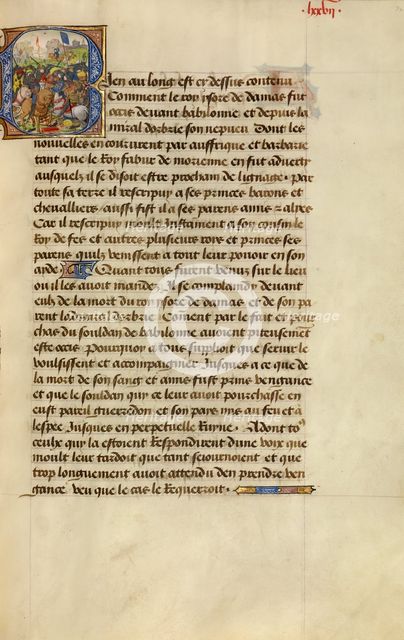 lxxvii
Bien au long est cy dessus contenu
Comment le roy ysore de damas fut
occis deuant babilonne et depuis la
miral dorbrie son nepueu Dont les
nouuelles en coururent par auffrique et barbarie
tant que le Roy fabur de morienne en fut aduerty
ausquelz il se disoit estre prochain de lignage. Par
toute sa terre il rescripuy a ses princes barons et
cheualliers aussi fist il a ses parens amis et alyes
Car il rescripuy moult instament a son cousin le
Roy de fes et autres plusieurs rois et princes ses
parens quilz venissent a tout leur pouoir en son
ayde Quant tous furent venuz sur le lieu
ou il les auoit mandez Il se complaindy deuant
eulz de la mort du roy ysore de damas et de son pa
rent ladmiral dorbrie. Coment par le fait et pour
chas du souldan de babilonne auoient piteusement
este occis Pourquoy a tous supplioit que seruir le
voulsissent et accompaignier Jusques a ce que de
la mort de son sang et amis fust prinse vengance
et que le souldan qui ce leur auoit pourchasse en
eust pareil guerredon et son pays mis au feu et a
lespee Jusques en perpetuelle Ruyne. Adont to9
ceulx qui la estoient Respondirent dune voix que
moult leur tardoit que tant seiournoient et que
trop longuement auoit attendu den prendre ven
gance veu que le cas le Requeroit.
heritage